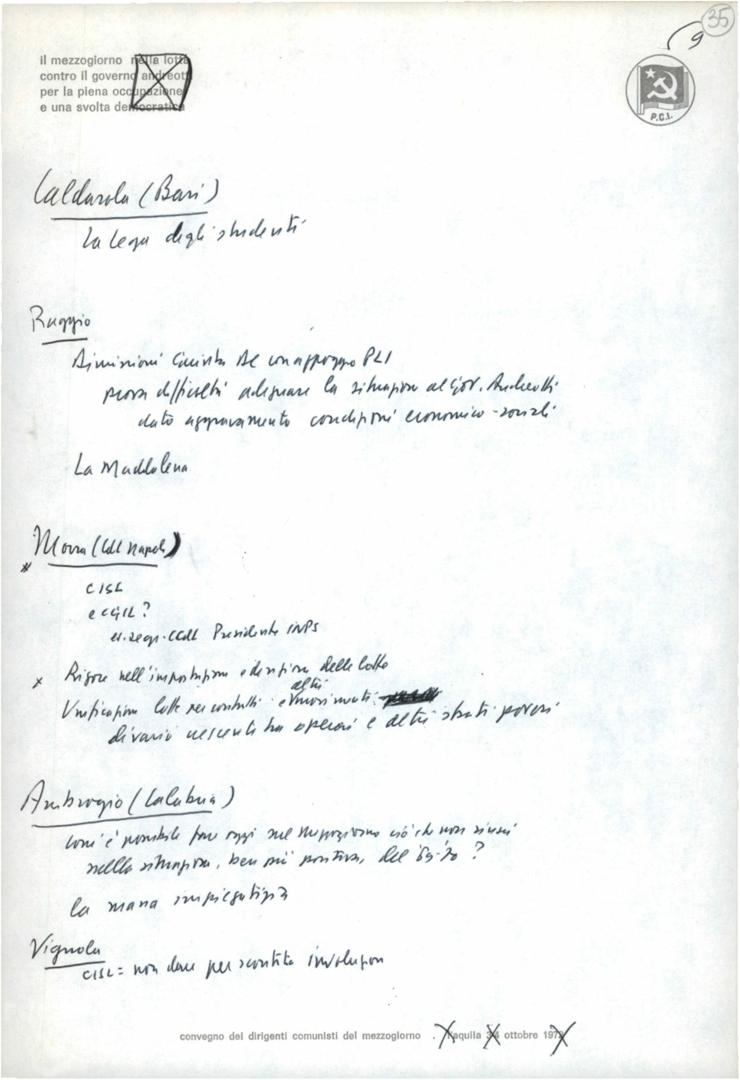 35
9
il mezzogiorno nella lotta
contro il governo andreotti
per la piena occupazione
e una svolta democratica
P.C.I.
Caldarola (Bari)
La Lega degli studenti
Ruggio
Dimissioni Giunta DC con appoggio PLI
prova difficoltà adeguare la situazione al Gov. Andreotti
dato aggravamento condizioni economico-sociali
La Maddalena
Morra (CdL Napoli)
CISL
e CGIL?
Presidente INPS
x Rigore nell'impostazione e direzione delle lotte
Unificazione lotte per contratti e altri movimenti
divario crescente tra operai e altri strati poveri
Ambrogio (Calabria)
com'è possibile fare oggi nel Mezzogiorno ciò che non riuscì
nella situazione, ben più positiva, del '69-'70?
la massa impiegatizia
Vignola
CISL = non dare per scontata involuzione
convegno dei dirigenti comunisti del mezzogiorno . l'aquila 3/4 ottobre 1972